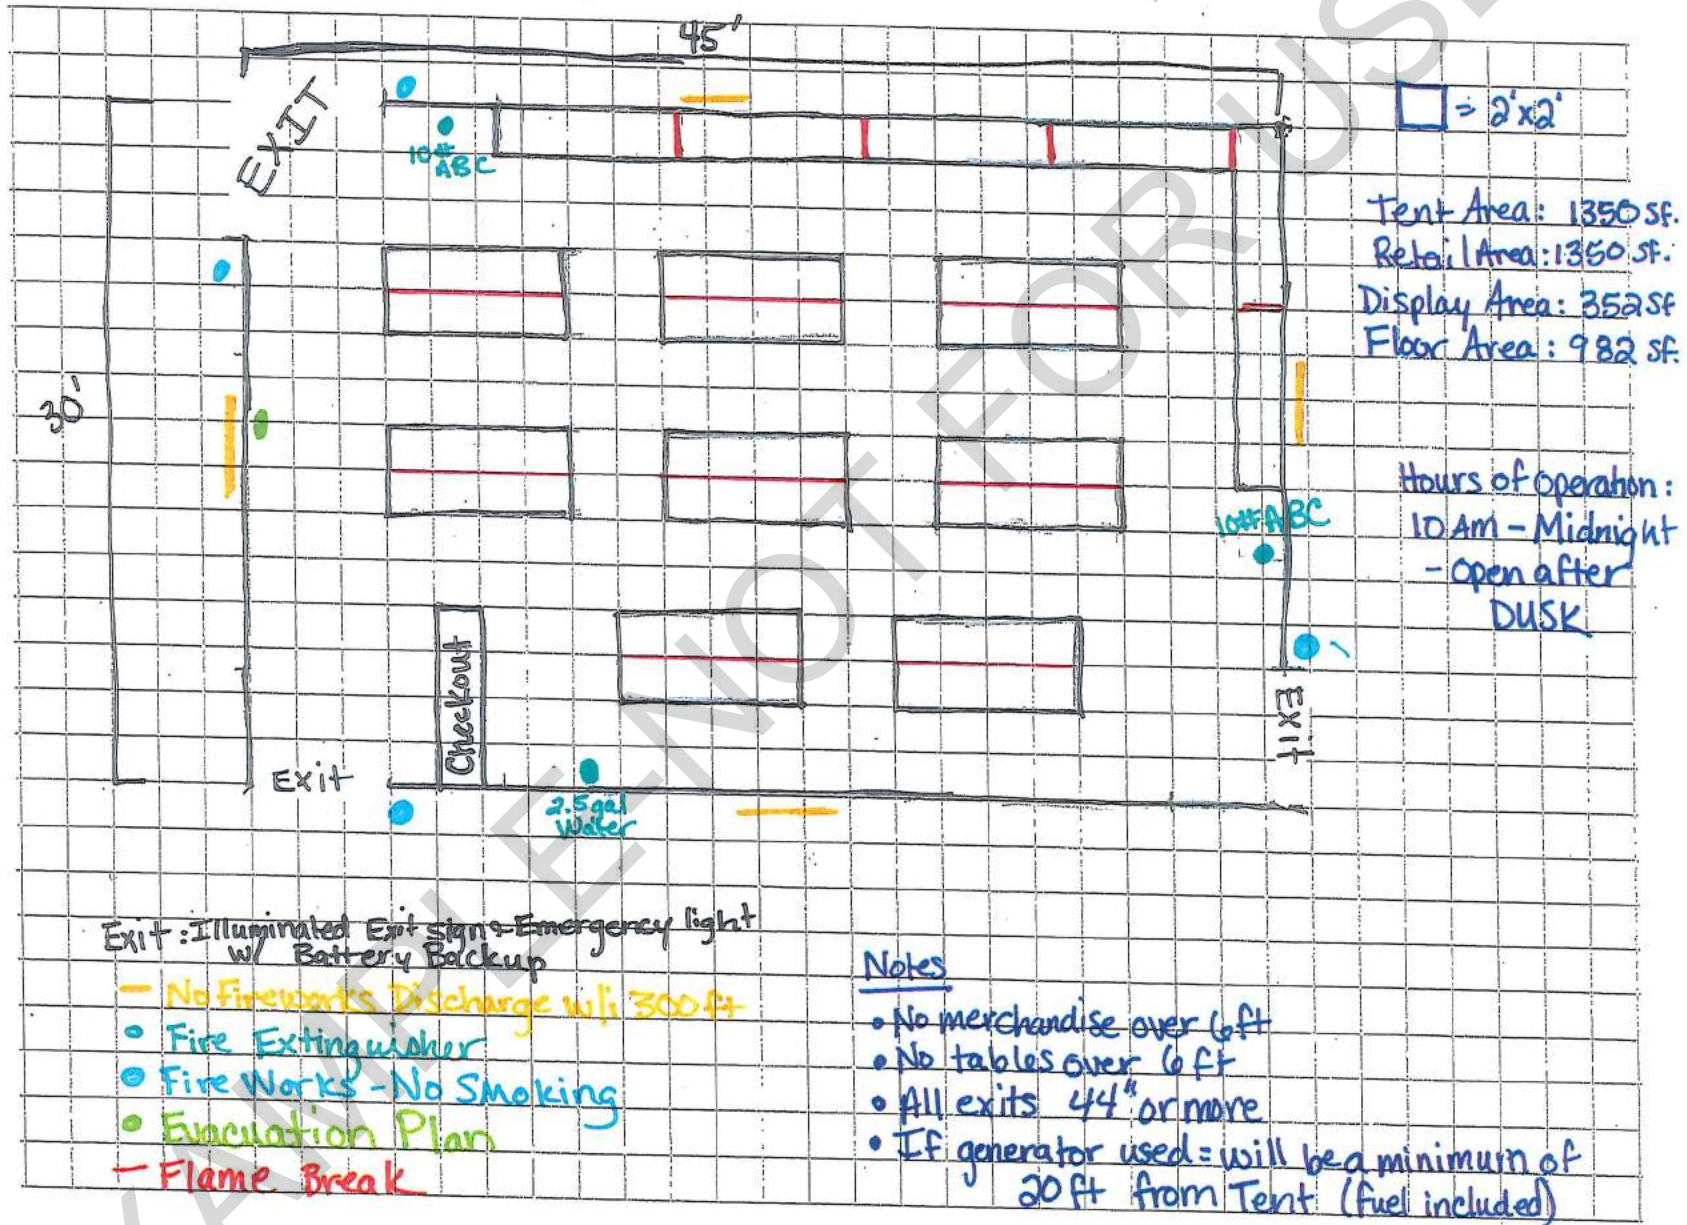 45'
EXIT
= 2'x2'
10#
ABC
Tent Area: 1350 Sf.
Retail Area: 1350 Sf.
Display Area: 352 Sf
Floor Area: 982 Sf.
30'
Hours of operation:
10 Am - Midnight
- open after
DUSK
10# ABC
Checkout
Exit
Exit
2.5 gal
Water
Exit: Illuminated Exit sign & Emergency light
w/ Battery Backup
- No Fireworks Discharge w/i 300 ft
Fire Extinguisher
Fire Works - No Smoking
Evacuation Plan
- Flame Break
Notes
• No merchandise over 6ft
• No tables over 6ft
• All exits 44" or more
• If generator used = will be a minimum of
20 ft from Tent (fuel included)
AMPLE-NOT FOR US